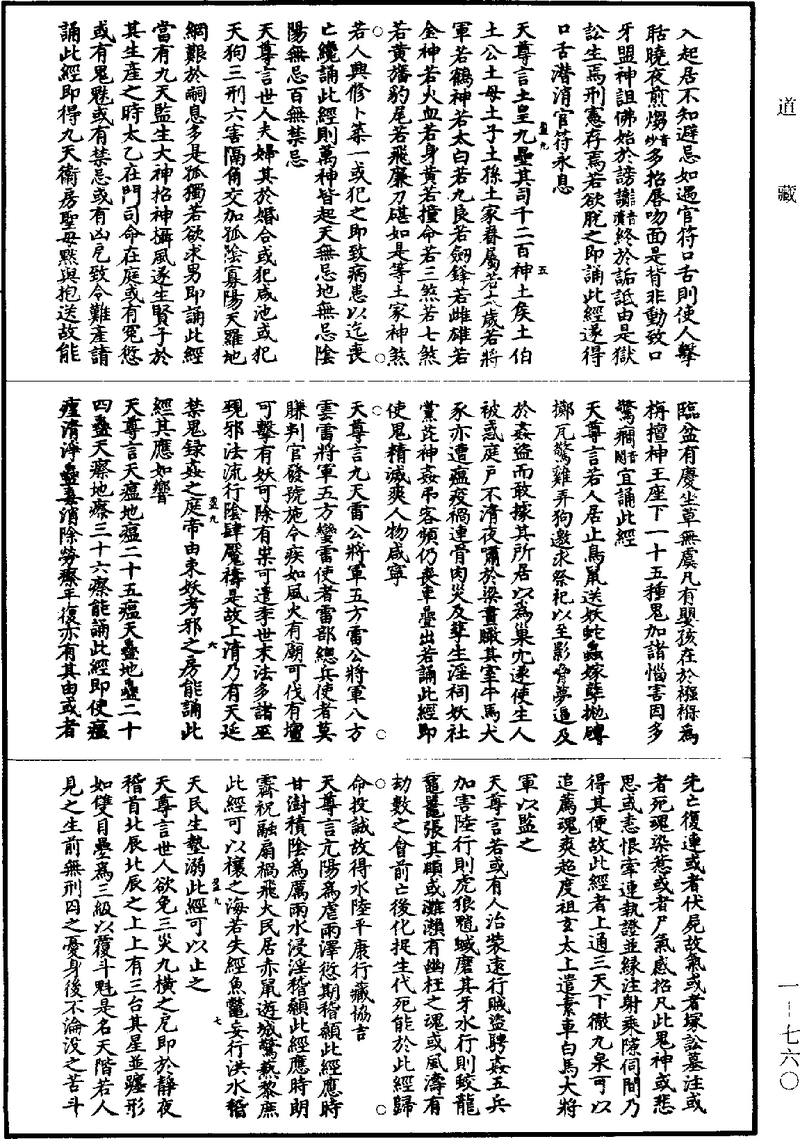 道藏
入起居不知避忌如遇官符口舌則使人擊
聒曉夜煎煼音炒多招唇吻面是背非動致口
牙盟神詛佛始於謗讟音讀終於詬詆由是獄
訟生焉刑憲存焉若欲脫之即誦此經遂得
口舌潛消官符永息
盈九　五
天尊言土皇九壘其司千二百神土侯土伯
土公土母土子土孫土家眷屬若太歲若將
軍若鶴神若太白若九良若劍鋒若雌雄若
金神若火血若身黃若撞命若三煞若七煞
若黃旛豹尾若飛廉刀碪如是等土家神煞
若人興修卜築一或犯之即致病患以迄喪
亡纔誦此經則萬神皆起天無忌地無忌陰
陽無忌百無禁忌
天尊言世人夫婦其於婚合或犯咸池或犯
天狗三刑六害隔角交加孤陰寡陽天羅地
網艱於嗣息多是孤獨若欲求男即誦此經
當有九天監生大神招神攝風遂生賢子於
其生產之時太乙在門司命在庭或有冤愆
或有鬼魅或有禁忌或有凶厄致令難產請
誦此經即得九天衛房聖母默與抱送故能
臨盆有慶坐草無虞凡有嬰孩在於襁褓為
栴檀神王座下一十五種鬼加諸惱害因多
驚癇音閑宜誦此經
天尊言若人居止鳥鼠送妖蛇蟲嫁孽拋磚
擲瓦驚雞弄狗邀求祭祀以至影脅夢逼及
於姦盜而敢據其所居以為巢穴遂使生人
被惑庭戶不清夜嘯於梁晝瞰其室牛馬犬
豕亦遭瘟疫禍連骨肉災及孳生淫祠妖社
黨庇神姦弔客頻仍喪車疊出若誦此經即
使鬼精滅爽人物咸寧
天尊言九天雷公將軍五方雷公將軍八方
雲雷將軍五方蠻雷使者雷部總兵使者莫
賺判官發號施令疾如風火有廟可伐有壇
可擊有妖可除有祟可遣季世末法多諸巫
覡邪法流行陰肆魘禱是故上清乃有天延
盈九　六
禁鬼錄姦之庭帝由束妖考邪之房能誦此
經其應如響
天尊言天瘟地瘟二十五瘟天蠱地蠱二十
四蠱天瘵地瘵三十六瘵能誦此經即使瘟
㾮清淨蠱毒消除勞瘵平復亦有其由或者
先亡復連或者伏屍故氣或者塚訟墓注或
者死魂染惹或者尸氣感招凡此鬼神或悲
思或恚恨牽連執證並緣注射乘隙伺間乃
得其便故此經者上通三天下徹九泉可以
追薦魂爽超度祖玄太上遣素車白馬大將
軍以監之
天尊言若或有人治裝遠行賊盜騁姦五兵
加害陸行則虎狼魑魊磨其牙水行則蛟龍
黿鼉張其頤或灘瀨有幽枉之魂或風濤有
劫數之會前亡後化捉生代死能於此經歸
命投誠故得水陸平康行藏協吉
天尊言亢陽為虐雨澤愆期稽顙此經應時
甘澍積陰為厲雨水浸淫稽顙此經應時朗
霽祝融扇禍飛火民居赤鼠遊城驚爇黎庶
此經可以禳之海若失經魚鼈妄行洪水稽
盈九　七
天民生墊溺此經可以止之
天尊言世人欲免三災九橫之厄即於靜夜
稽首北辰北辰之上上有三台其星並躔形
如雙目疊為三級以覆斗魁是名天階若人
見之生前無刑囚之憂身後不淪沒之苦斗
一－七六〇